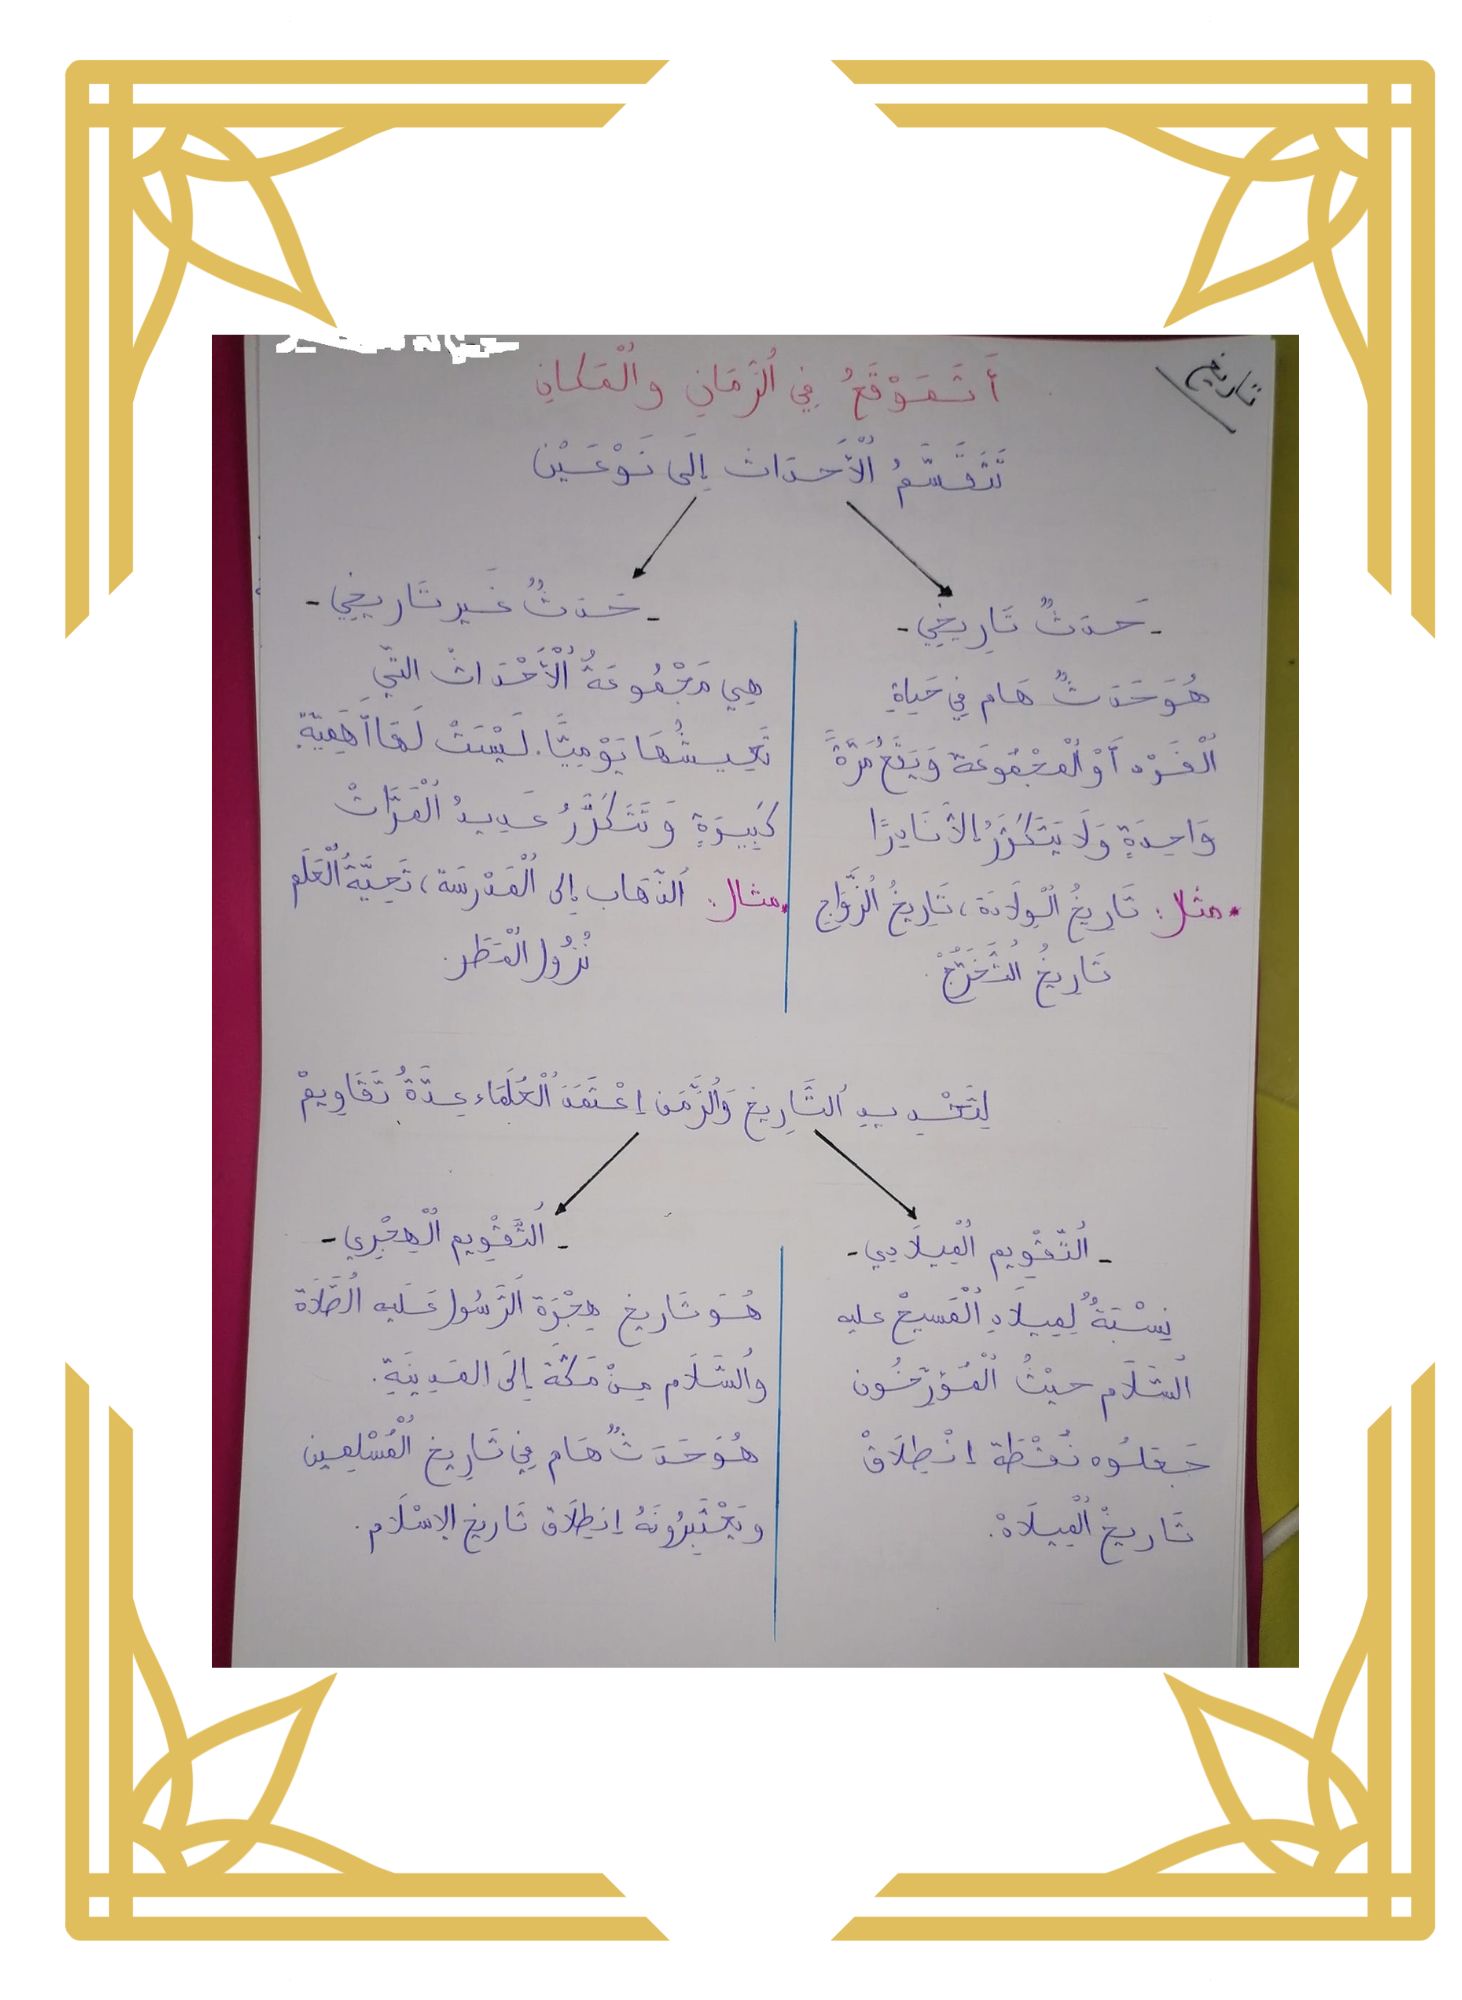 تاريخ
أَتَمَوْقَعُ فِي اَلزَّمَانِ والْمَكانِ
تَتَقَسَّمُ اُلْأَحدَاث إِلَى نَوْعَيْن
- حَدَثٌ تَارِيخِي -
هُوَ حَدَثٌ هَام فِي حَياةِ
اُلْفَرْد أَوْ اُلْمجْمُوعَة وَيَقَعُ مَرَّةً
وَاحِدَةٍ وَلَا يَتَكَرَّرُ إلاَّ نَادِرًا
* مثال: تَارِيخُ اُلْوِلَادَة، تَارِيخُ اُلزَّوَاج
تَارِيخُ اُلتَّخَرُّجْ.
- حَدَثٌ غَير تَاريخِي -
هِي مَجْمُوعَةُ اُلْأَحْدَاثْ التّي
نَعِيشُهَا يَوْمِيًّا. لَيْسَتْ لَهَا أَهَمِيّةٍ
كَبِيرَةٍ وَ تَتَكَرَّرُ عَدِيدُ اُلْمَرَّاتْ
* مثال: اُلذّهَاب إلى اُلْمَدْرسَة، تَحِيَّةُ اُلْعَلَم
نُزُول المَطَر.
لِتَحْدِيدِ اُلتَّارِيخ وَاُلزَّمَن اِعْتَمَدَ اُلْعُلَمَاء عِدَّةُ تَقَاوِيمْ
- اُلتَّقْوِيم اُلْمِيلَادِي -
نِسْبَةٌ لِمِيلَادِ اُلْمَسيحْ عليه
اُلسَّلَام حيْثُ اُلْمُؤَرّخُون
جَعلُوه نُقْطَة اِنْطِلَاقْ
تَاريخْ اُلْمِيلَادْ.
- اُلتَّقْوِيم اُلْهِجْرِي -
هُوَ تَاريخ هِجْرَة اَلرَّسُول عَلَيه اُلصَّلَاة
واُلسَّلَام مِنْ مَكَّةَ إِلَى المَدِينَةِ.
هُوَ حَدَثٌ هَام فِي تَارِيخ اُلْمُسْلِمِين
ويَعْتَبِرُونَهُ اِنطِلَاقَ تَاريخ الإسْلَام.